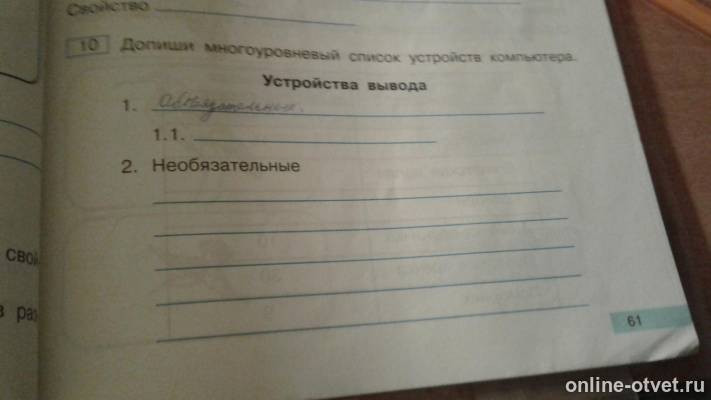 Свойство
10 Допиши многоуровневый список устройств компьютера.
Устройства вывода
1. Обязательные.
1.1.
2. Необязательные
свой
в раз
61
online-otvet.ru